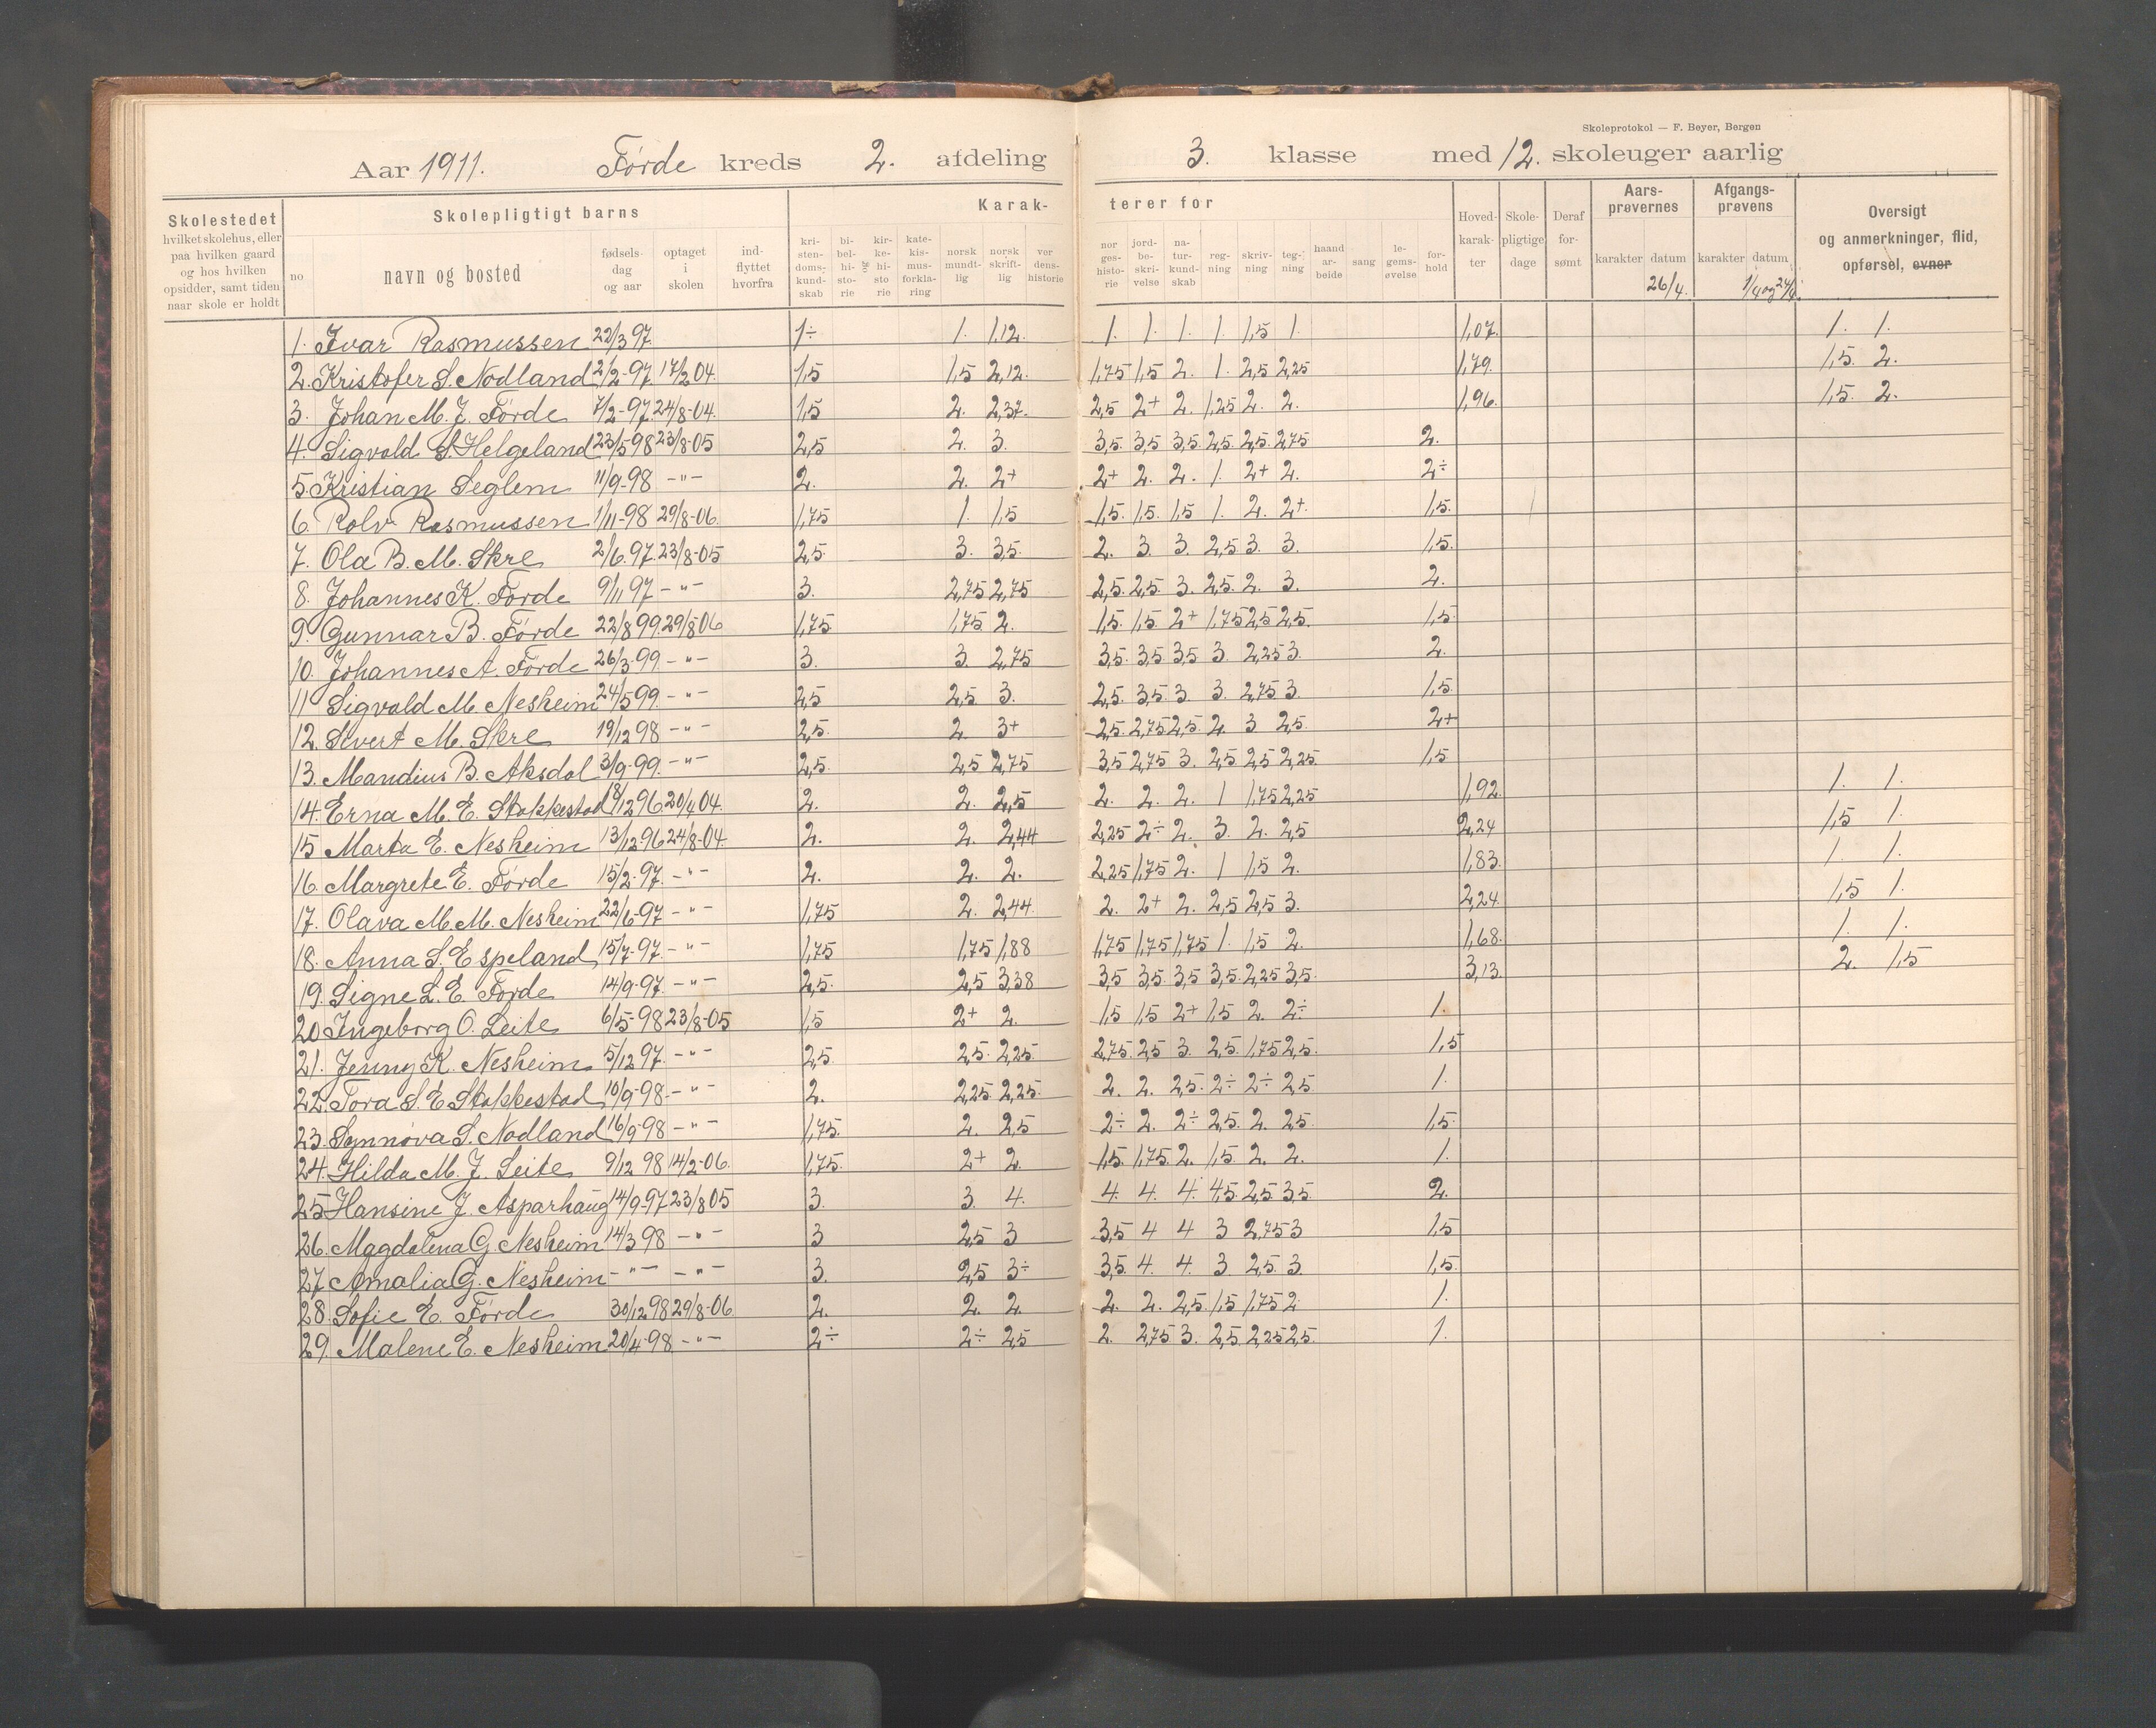 Skoleprotokol — F. Beyer, Bergen
Aar 1911. Førde kreds 2. afdeling 3. klasse med 12. skoleuger aarlig
Skolestedet hvilket skolehus, eller paa hvilken gaard og hos hvilken opsidder, samt tiden naar skole er holdt
Skolepligtigt barns
no navn og bosted fødselsdag og aar optaget i skolen indflyttet hvorfra
Karakterer for
kristendomskundskab bibelhistorie og kirkehistorie katekismusforklaring norsk mundtlig norsk skriftlig verdenshistorie norgeshistorie jordbeskrivelse naturkundskab regning skrivning tegning haandarbeide sang legemsøvelse forhold
Hovedkarakter Skolepligtige dage Deraf forsømt
Aarsprøvernes karakter datum 26/4.
Afgangsprøvens karakter datum 1/4 og 24/4.
Oversigt og anmerkninger, flid, opførsel, evner
1. Ivar Rasmussen 22/3 97. 1÷ 1. 1,12. 1. 1. 1. 1. 1,5 1. 1,07. 1. 1.
2. Kristofer S. Nodland 2/2-97. 17/2 04. 1,5 1,5 2,12. 1,75 1,5 2. 1. 2,5 2,25 1,79. 1,5. 2.
3. Johan M. J. Førde 7/2-97. 24/8-04. 1,5 2. 2,37. 2,5 2+ 2. 1,25 2. 2. 1,96. 1,5 2.
4. Sigvald S. Helgeland 23/5-98 23/8-05 2,5 2. 3. 3,5. 3,5 3,5. 2,5. 2,5. 2,75 2.
5. Kristian Seglem 11/9-98 -"- 2. 2. 2+ 2+ 2. 2. 1. 2+ 2. 2÷
6. Rolv Rasmussen 1/11-98 29/8-06. 1,75 1. 1,5 1,5. 1,5. 1,5 1. 2. 2+. 1,5.
7. Ola B. M. Skre 2/6. 97. 23/8-05 2,5. 3. 3,5. 2. 3. 3. 2,5 3. 3. 1,5.
8. Johannes K. Førde 9/11 97 -"- 3. 2,75 2,75 2,5. 2,5. 3. 2,5. 2. 3. 2.
9. Gunnar B. Førde 22/8 99. 29/8 06 1,75 1,75 2. 1,5. 1,5. 2+ 1,75 2,5 2,5. 1,5.
10. Johannes A. Førde 26/3. 99. -"- 3. 3. 2,75 3,5. 3,5. 3,5 3. 2,25 3. 2.
11 Sigvald M. Nesheim 24/5 99. -"- 2,5 2,5 3. 2,5. 3,5. 3 3. 2,75 3. 1,5.
12. Sivert M. Skre 19/12 98 -"- 2,5. 2 3+ 2,5. 2,75 2,5. 2. 3 2,5. 2+
13. Mandius B. Aksdal 3/9. 99. -"- 2,5. 2,5 2,75 3,5 2,75 3. 2,5 2,5 2,25. 1,5
14. Erna M. E. Stakkestad 18/12 96 20/4 04. 2. 2. 2,5 2. 2. 2. 1 1,75 2,25 1,92. 1. 1.
15 Marta E. Nesheim 13/12-96 24/8-04. 2. 2. 2,44 2,25 2÷ 2. 3. 2. 2,5 2,24 1,5 1.
16. Margrete E. Førde 15/2-97. -"- 2. 2. 2. 2,25 1,75 2. 1 1,5 2. 1,83. 1. 1.
17. Olava M. M. Nesheim 22/6-97 -"- 1,75 2. 2,44. 2. 2+ 2. 2,5 2,5 3. 2,24. 1,5 1.
18. Anna S. Espeland 15/7-97. -"- 1,75 1,75 1,88 1,75 1,75 1,75 1. 1,5 2. 1,68. 1. 1.
19. Signe L. E. Førde 14/9-97. -"- 2,5. 2,5 3,38 3,5 3,5. 3,5 3,5. 2,25 3,5. 3,13. 2. 1,5
20 Ingeborg O. Leite 6/5-98 23/8-05 1,5 2+ 2. 1,5 1,5 2+ 1,5 2. 2÷ 1.
21. Jenny K. Nesheim 5/12 97. -"- 2,5. 2,5. 2,25 2,75. 2,5 3. 2,5. 1,75 2,5. 1,5
22. Tora S. E. Stakkestad 10/9-98. -"- 2. 2,25. 2,25. 2. 2. 2,5. 2÷ 2÷ 2,5 1.
23. Synnøva S. Nodland 16/9-98 -"- 1,75. 2. 2,5 2÷ 2. 2÷ 2,5. 2. 2,5. 1,5.
24. Hilda M. J. Leite 9/12 98 14/2-06. 1,75. 2+ 2. 1,5. 1,75. 2. 1,5. 2. 2. 1.
25 Hansine J. Asparhaug 14/9-97 23/8 05 3. 3. 4. 4. 4. 4. 4,5. 2,5 3,5. 2.
26. Magdalena G. Nesheim 14/3 98 -"- 3 2,5 3 3,5 4 4 3 2,75 3 1,5
27 Amalia G. Nesheim -"- -"- 3. 2,5 3÷ 3,5. 4. 4. 3 2,5. 3 1,5.
28. Sofie E. Førde 30/12 98 29/8-06 2. 2. 2. 2. 2. 2,5. 1,5 1,75 2 1.
29. Malene E. Nesheim 20/4-98 -"- 2÷ 2÷ 2,5 2. 2,75 3. 2,5 2,25 2,5. 1.